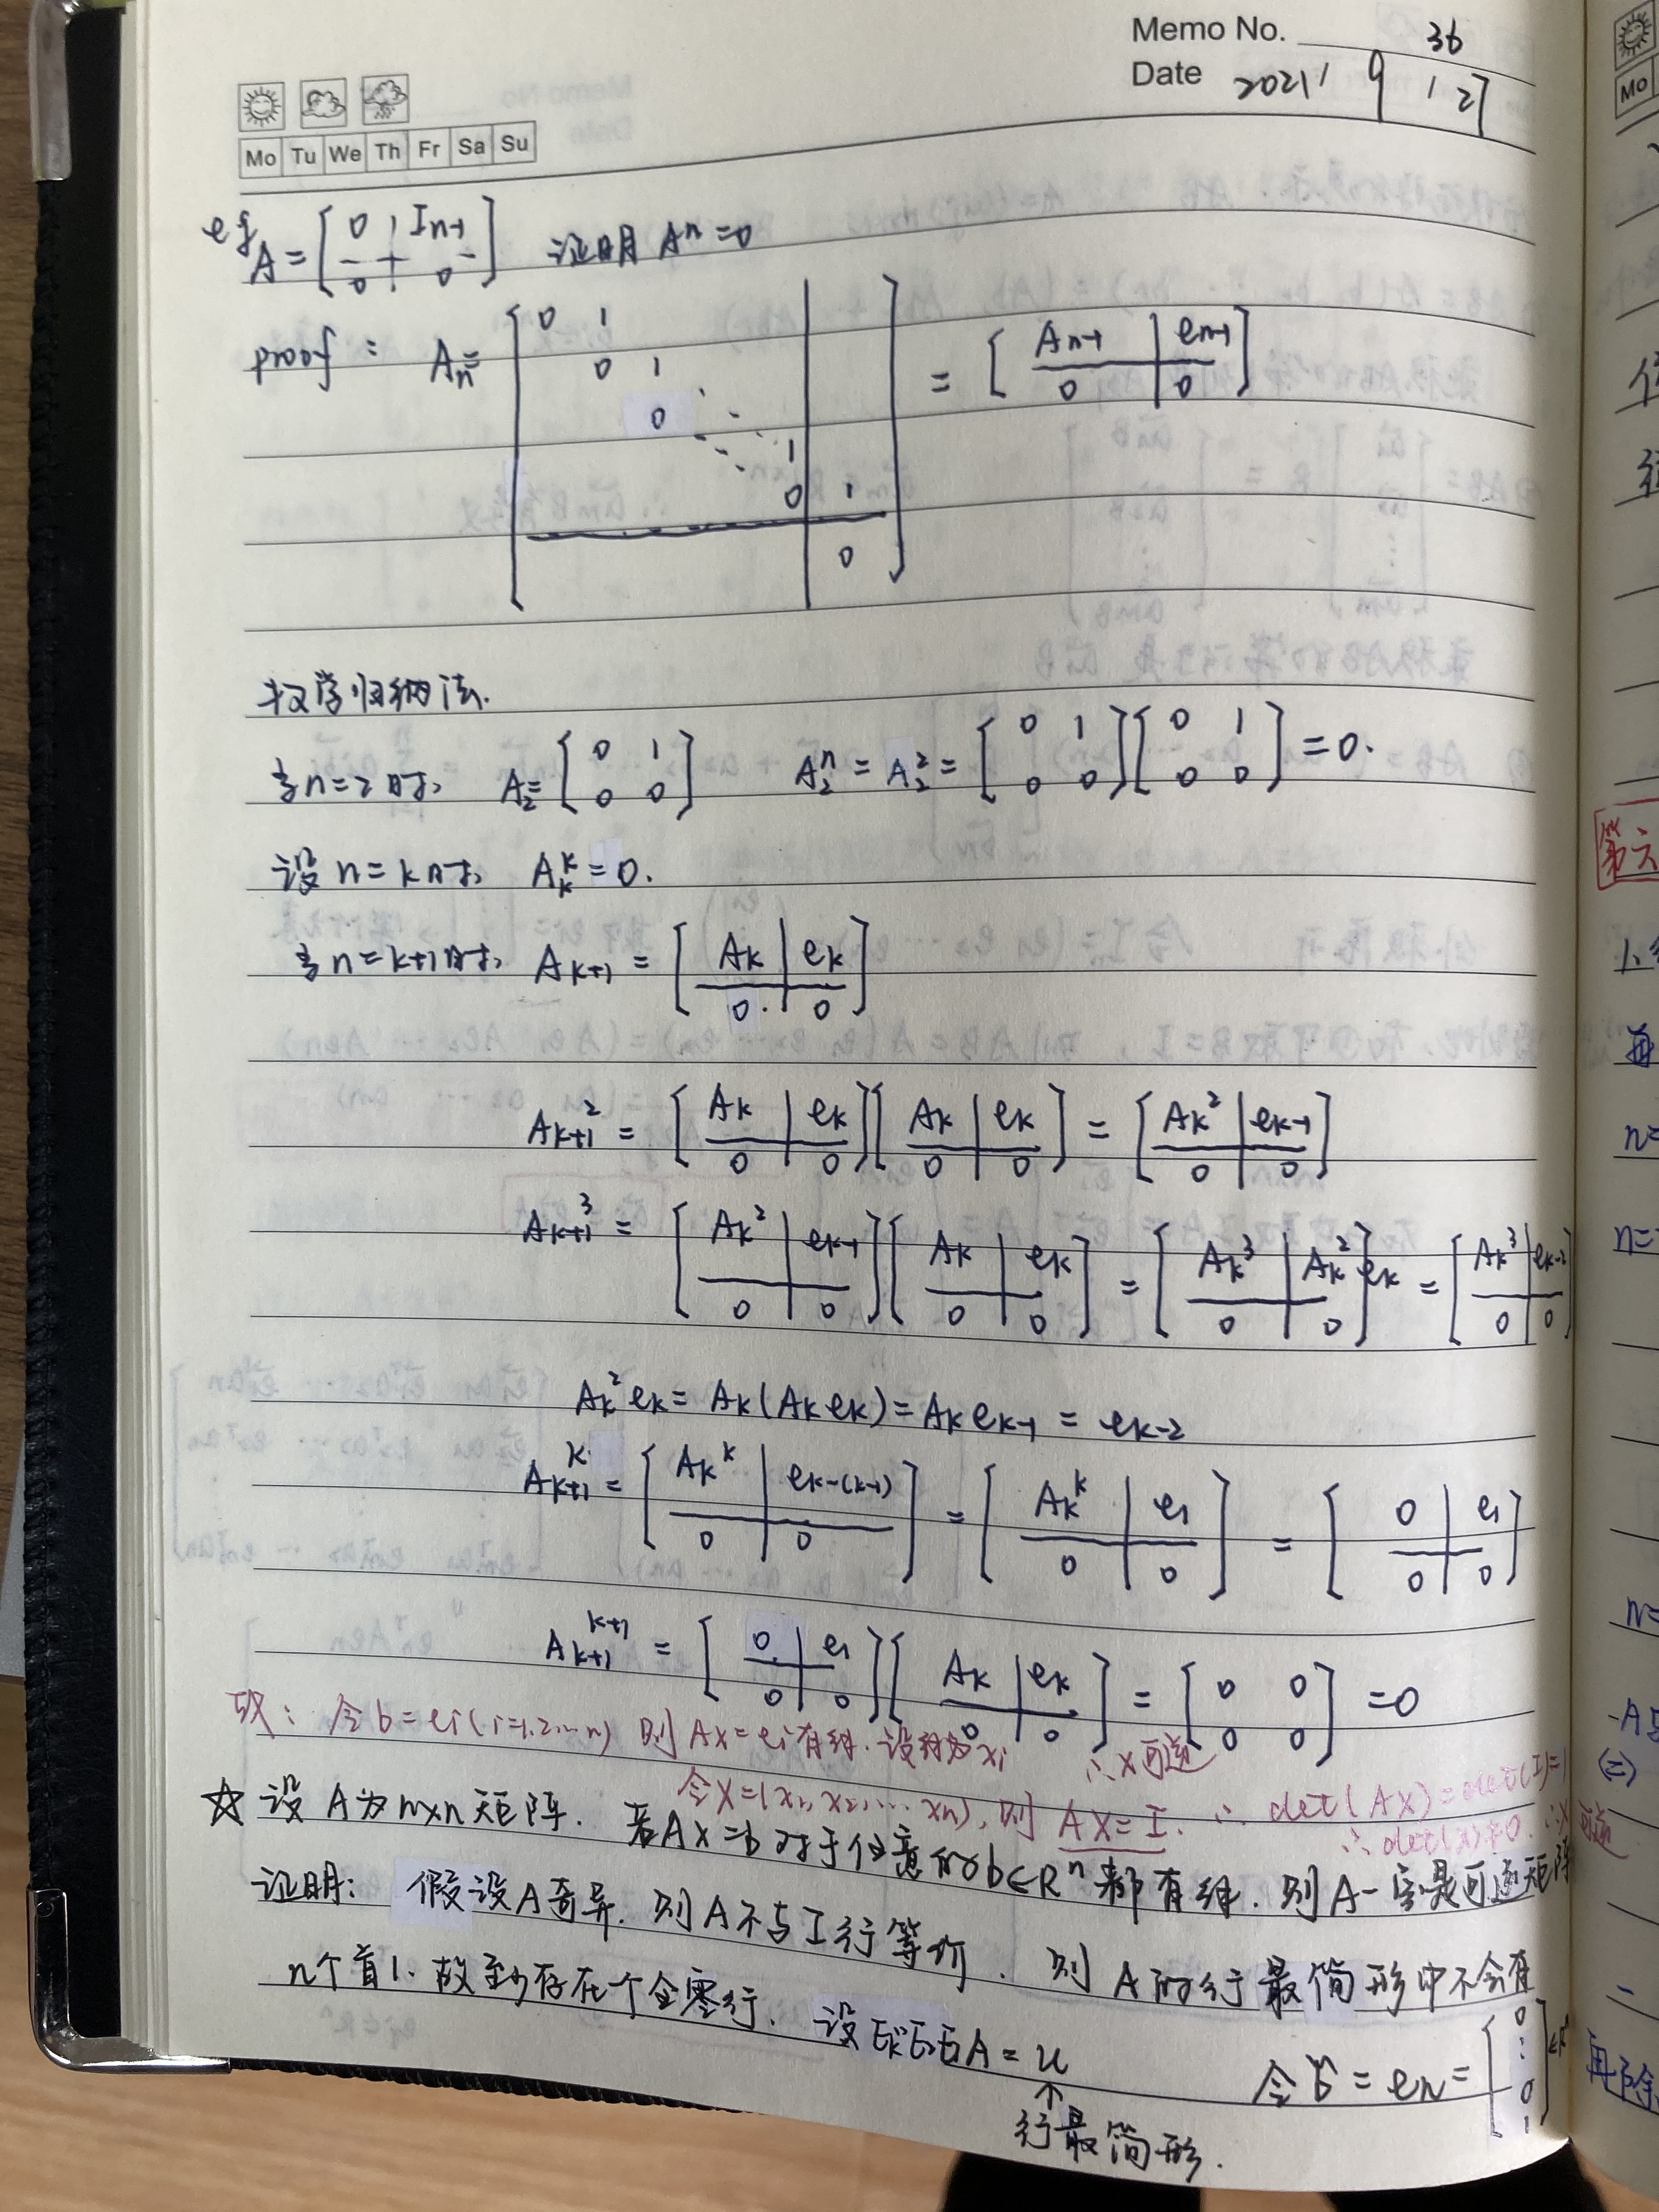 Memo No. 36
Date 2021 / 9 / 27
Mo Tu We Th Fr Sa Su
eg A = [ 0 | I_{n-1} ; 0 | 0 ] 证明 A^n = 0
proof: A_n = [ 0 1 ; 0 1 ; 0 ⋱ ; ⋱ 1 ; 0 1 ; 0 ] = [ A_{n-1} | e_{n-1} ; 0 | 0 ]
数学归纳法.
当n=2时, A_2 = [ 0 1 ; 0 0 ] A_2^n = A_2^2 = [ 0 1 ; 0 0 ][ 0 1 ; 0 0 ] = 0.
设 n=k时, A_k^k = 0.
当n=k+1时, A_{k+1} = [ A_k | e_k ; 0 | 0 ]
A_{k+1}^2 = [ A_k | e_k ; 0 | 0 ][ A_k | e_k ; 0 | 0 ] = [ A_k^2 | e_{k-1} ; 0 | 0 ]
A_{k+1}^3 = [ A_k^2 | e_{k-1} ; 0 | 0 ][ A_k | e_k ; 0 | 0 ] = [ A_k^3 | A_k^2 e_k ; 0 | 0 ] = [ A_k^3 | e_{k-2} ; 0 | 0 ]
A_k^2 e_k = A_k(A_k e_k) = A_k e_{k-1} = e_{k-2}
A_{k+1}^k = [ A_k^k | e_{k-(k-1)} ; 0 | 0 ] = [ A_k^k | e_1 ; 0 | 0 ] = [ 0 | e_1 ; 0 | 0 ]
A_{k+1}^{k+1} = [ 0 | e_1 ; 0 | 0 ][ A_k | e_k ; 0 | 0 ] = [ 0 0 ; 0 0 ] = 0
或: 令b=e_i(i=1,2,…n) 则 Ax=e_i有解.设解为x_i ∴X可逆
令X=(x_1,x_2,…x_n),则 AX=I. ∴ det(AX)=det(I)=1
∴det(X)≠0. ∴X可逆
☆ 设 A为n×n矩阵. 若Ax=b对于任意的b∈R^n都有解.则A一定是可逆矩阵
证明: 假设A奇异.则A不与I行等价. 则A的行最简形中不会有
n个首1.故至少存在个全零行. 设E_k…E_2E_1A=U 令b=e_n=[ 0 ; ⋮ ; 0 ; 1 ]∈R^n
↑
行最简形.
Mo
第六
n=
n=
n=
(二)
再除